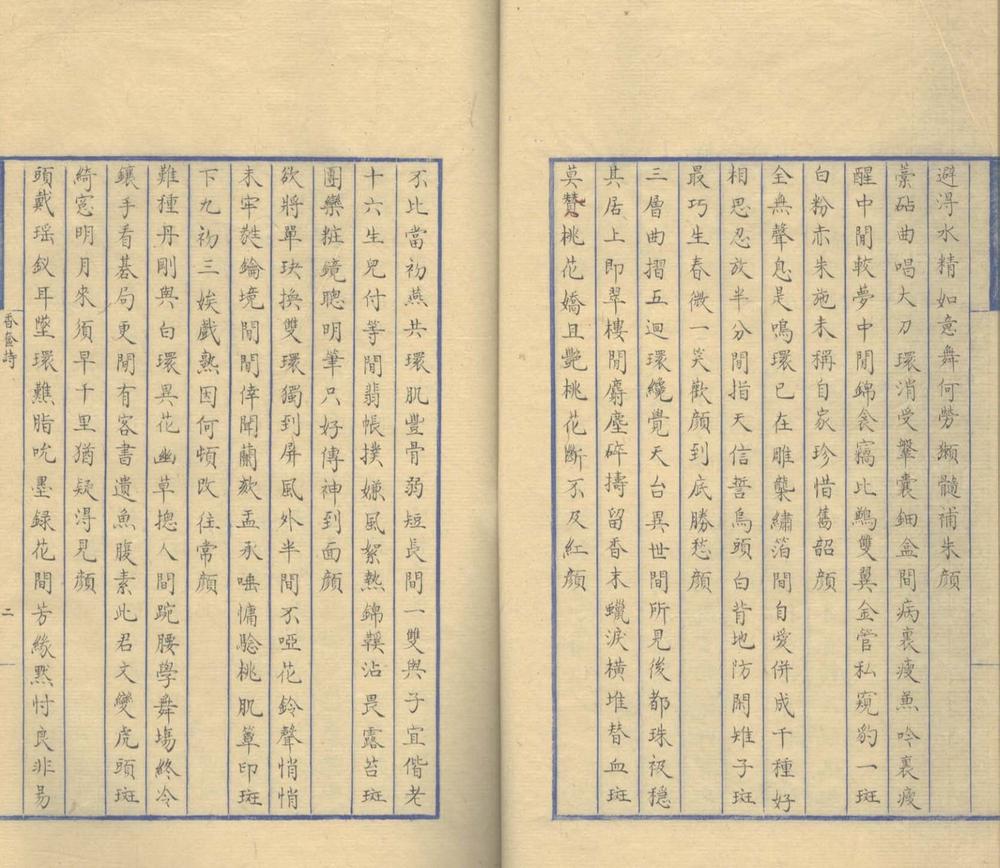 避淂水精如意舞何勞獺髓補朱顔
藁砧曲唱大刀環消受鞶囊鈿盒間病裏瘦兼吟裏瘦
醒中閒較夢中閒錦衾竊比鶼雙翼金管私窺豹一斑
白粉亦朱施未稱自家珍惜舊韶顔
全無聲息是鳴環已在雕櫳繡箔間自愛併成千種好
相思忍放半分閒指天信誓烏頭白背地防閑雉子斑
最巧生春微一笑歡顔到底勝愁顔
三層曲摺五迴環纔覺天台異世間所見後都珠衱穩
其居上即翠樓閒麝塵碎擣留香末蠟淚橫堆替血斑
莫贊桃花嬌且艷桃花斷不及紅顔
不比當初燕共環肌豐骨弱短長間一雙與子宜偕老
十六生兒付等閒翡帳撲嫌風絮熱錦鞵沾畏露苔斑
團欒粧鏡聰明筆只好傳神到面顔
欲將單玦換雙環獨到屏風外半間不啞花鈴聲悄悄
未牢㲄鑰境閒閒倖聞蘭欬盂承唾慵騐桃肌簟印斑
下九初三娭戲熟因何頓改往常顔
難種丹剛與白環異花幽草摠人間踠腰學舞塲終冷
鑲手看碁局更閒有客書遺魚腹素此君文變虎頭斑
綺窓明月來須早千里猶疑淂見顔
頭戴瑶釵耳墜環蘸脂吮墨録花間芳緣黙忖良非易
香奩詩
二